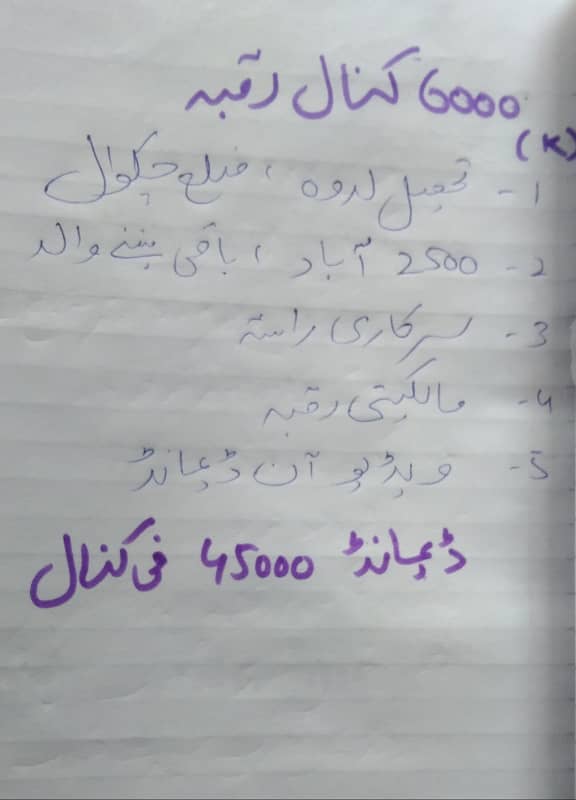 6000 کنال رقبہ
(K)
1- تحصیل لدوہ ، ضلع چکوال
2- 2500 آباد ، باقی بننے والہ
3- سرکاری راستہ
4- مالکیتی رقبہ
5- ویڈیو آن ڈیمانڈ
ڈیمانڈ 45000 فی کنال